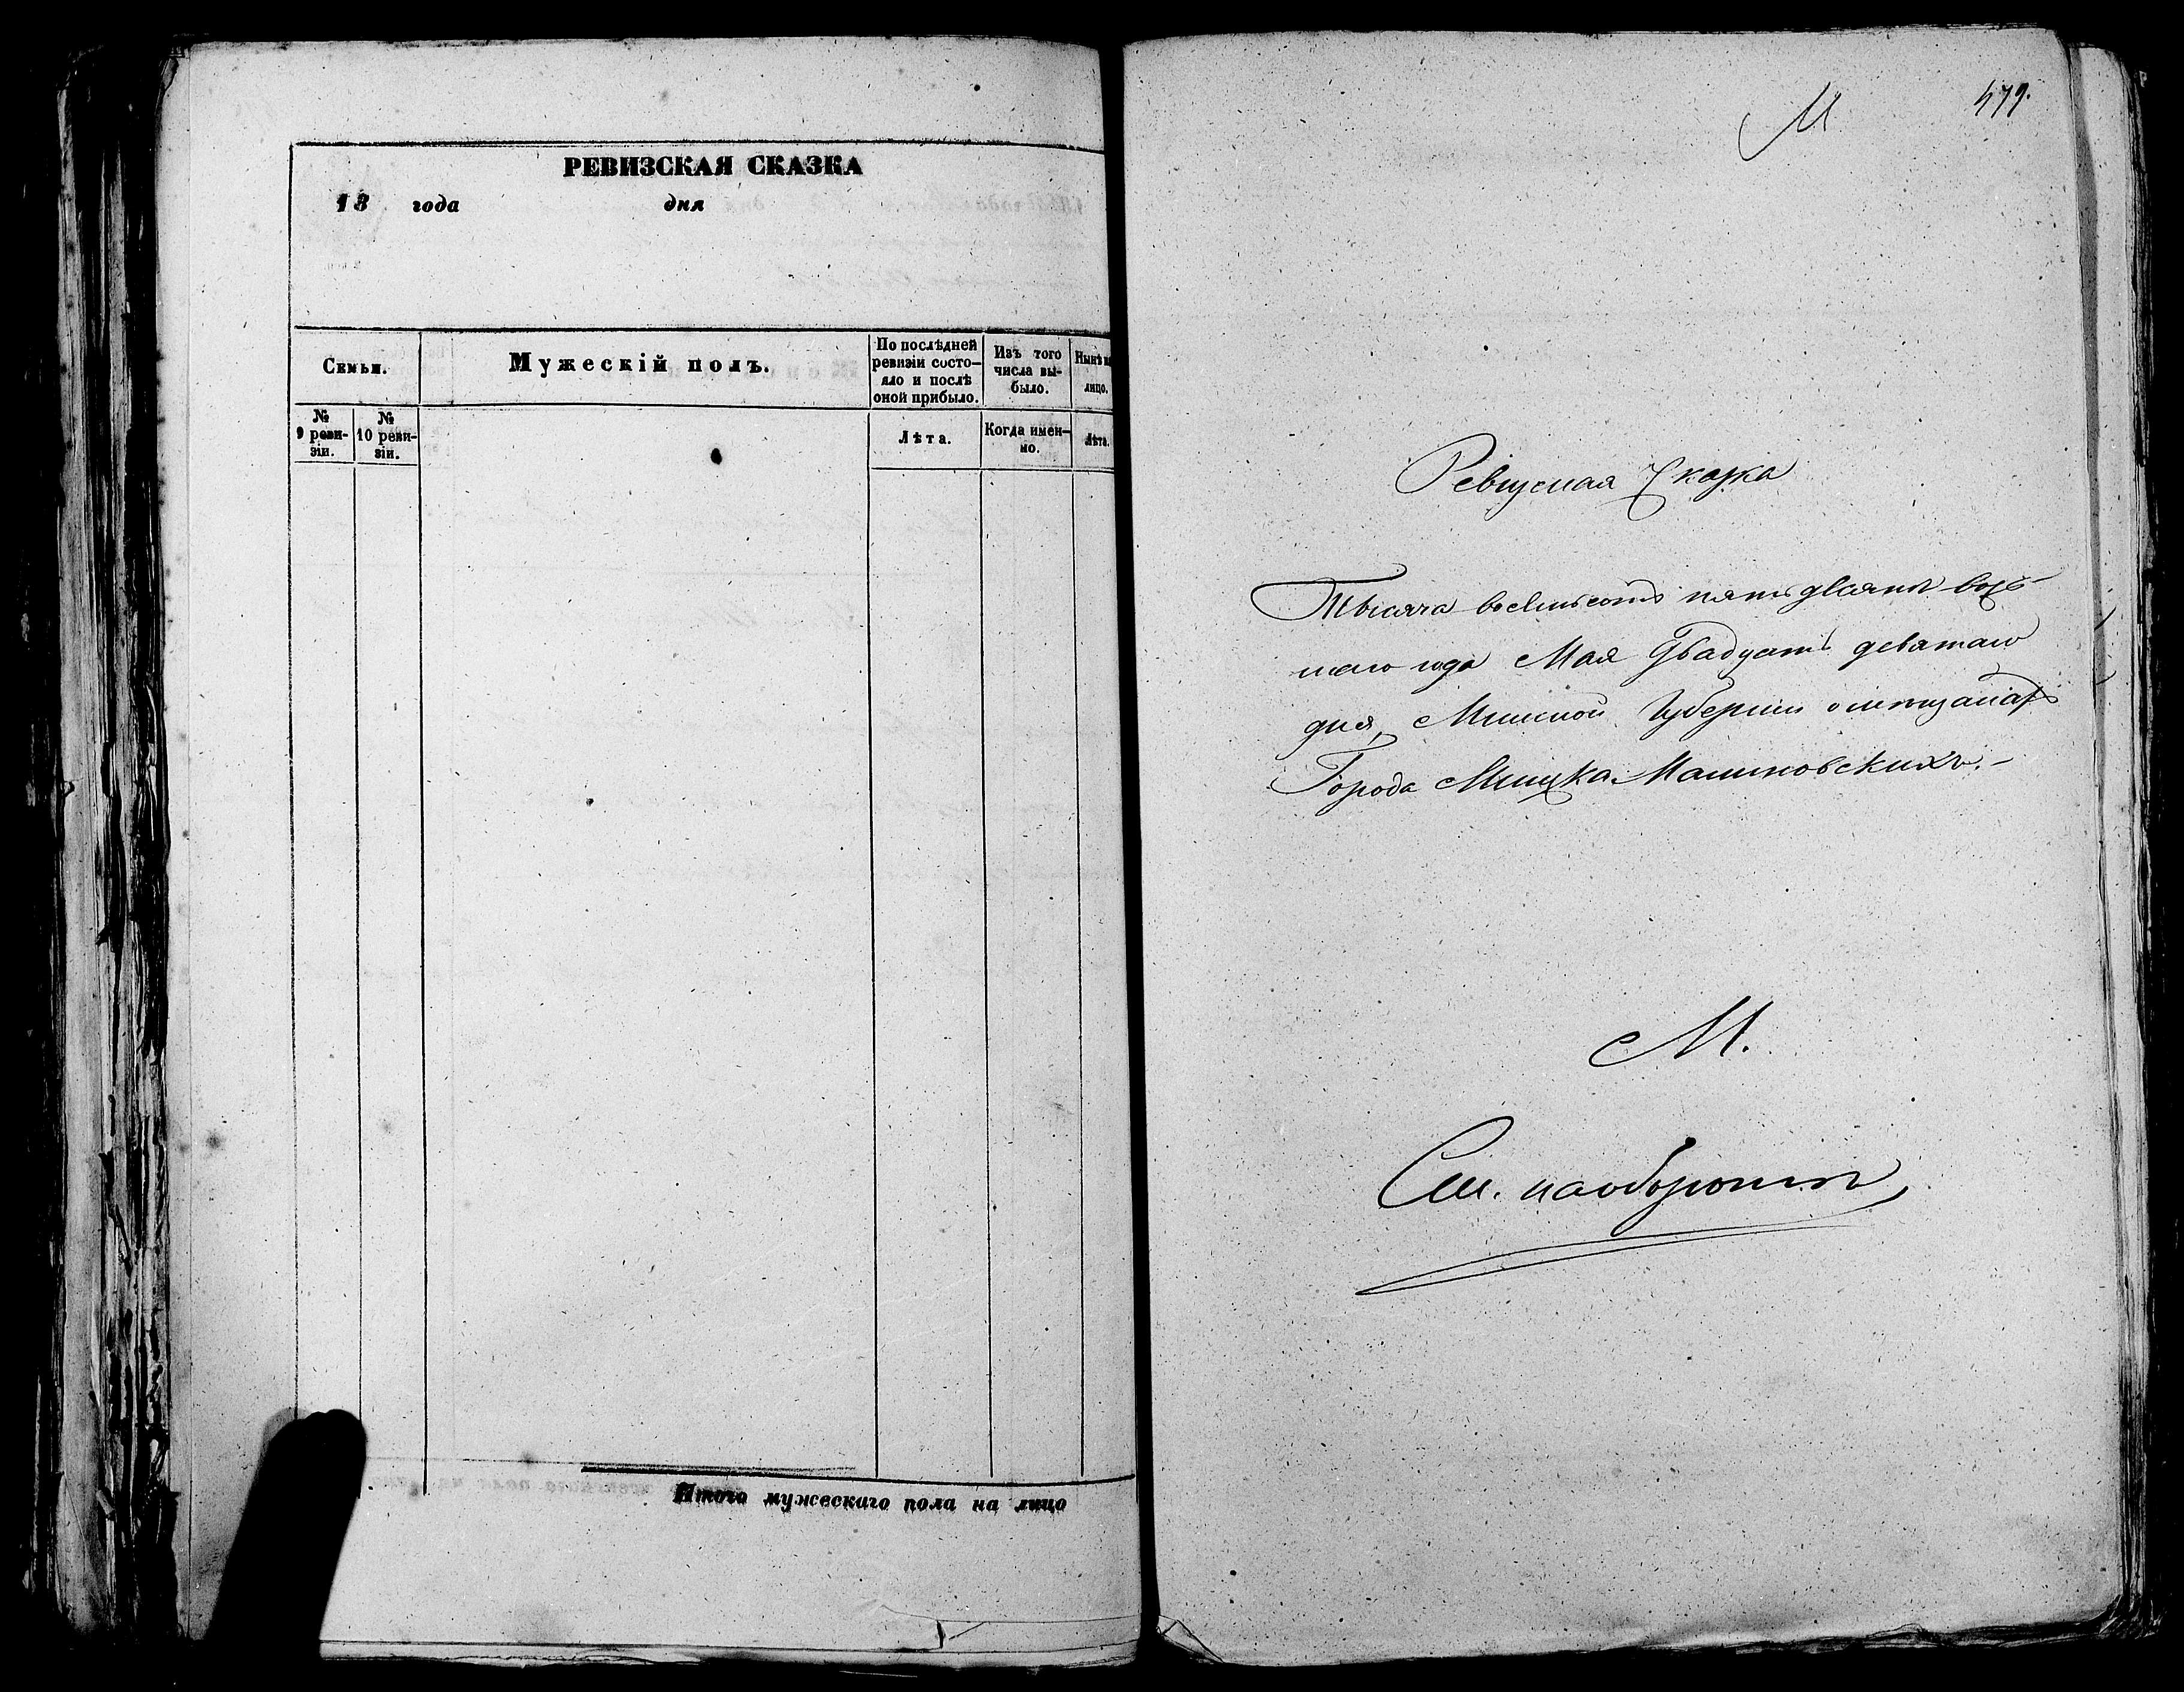 РЕВИЗСКАЯ СКАЗКА
18 года дня
Семьи.
Мужескій полъ.
По послѣдней
ревизіи состо-
яло и послѣ
оной прибыло.
Изъ того
числа вы-
было.
Нынѣ на
лицо.
№
9 реви-
зіи.
№
10 реви-
зіи.
Лѣта.
Когда имен-
но.
Лѣта.
Итого мужескаго пола на лицо
М
479.
Ревизская Сказка
Тысяча восемьсотъ пятьдесятъ вось-
маго года Мая Двадцать девятаго
дня, Минской Губерніи о мѣщанахъ
Города Минска Машковскихъ.-
М.
См. наоборотѣ